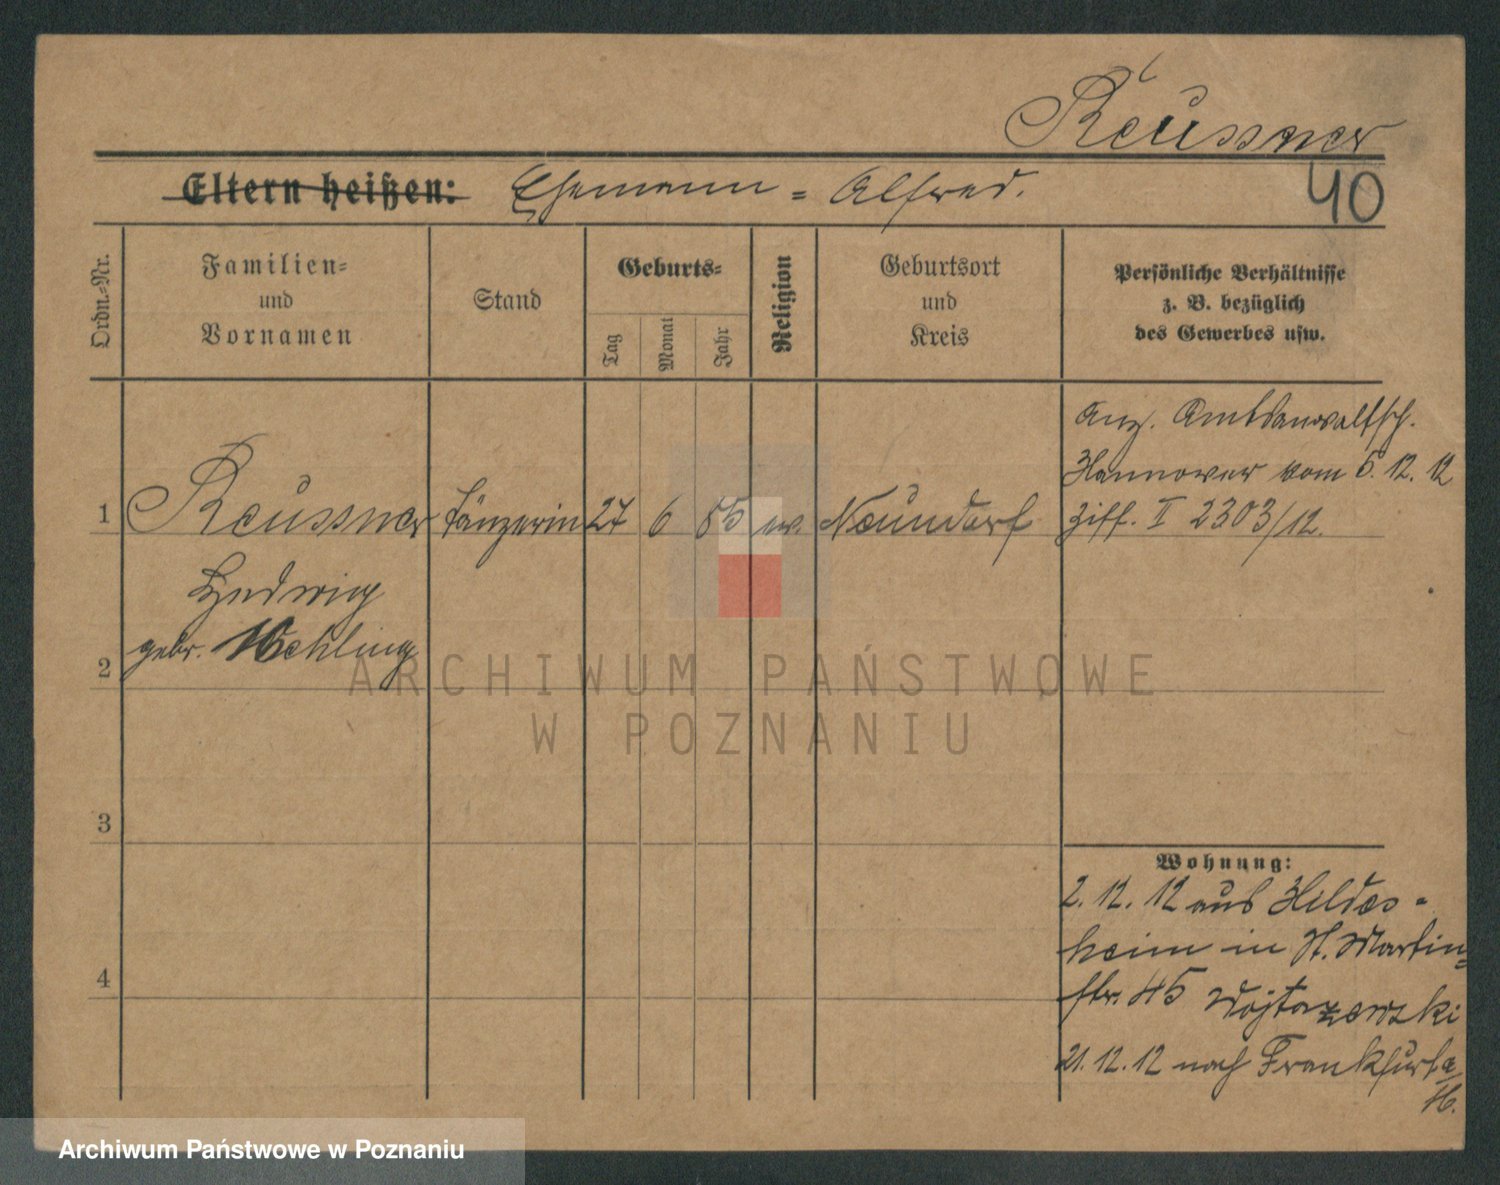 Reussner
Eltern heißen: Ehemann = Alfred.
40
Ordn.=Nr.
Familien=
und
Vornamen
Stand
Geburts=
Tag
Monat
Jahr
Religion
Geburtsort
und
Kreis
Persönliche Verhältnisse
z. B. bezüglich
des Gewerbes usw.
1
Reussner
Hedwig
gebr. Wehling
Tänzerin
27
6
85
ev.
Neundorf
Anz. Amtsanwaltsch.
Hannover vom 5. 12. 12
Ziff. II 2303/12.
2
3
4
Wohnung:
2. 12. 12 aus Hildes-
heim in St. Martin=
str. 45
21. 12. 12 nach Frankfurt a/
M.
ARCHIWUM PAŃSTWOWE
W POZNANIU
Archiwum Państwowe w Poznaniu